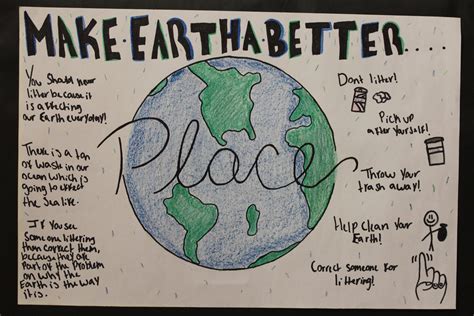 MAKE·EARTH·A·BETTER....
Place
You Should never
litter because it
is affecting
our Earth everyday!
There is a ton
of waste in our
ocean which is
going to effect
the Sea life.
If You see
Someone littering
than correct them,
because they are
Part of the Problem
on why the
Earth is the way
it is.
Dont litter!
Pick up
after Yourself!
Throw Your
trash away!
Help Clean Your
Earth!
Correct someone for
littering!